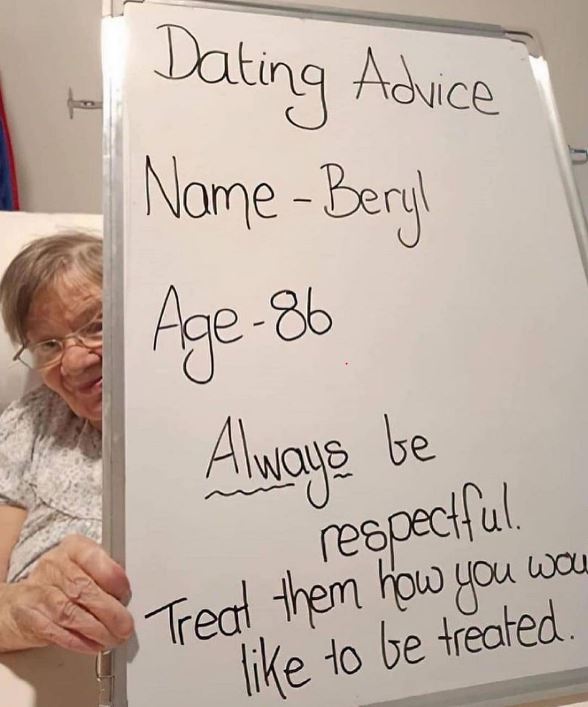 Dating Advice
Name - Beryl
Age - 86
Always be
respectful.
Treat them how you wou
like to be treated.